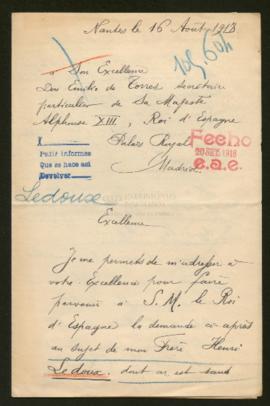 Nantes le 16 Août 1918
105.604
à Son Excellence
Don Emilio de Torres secrétaire
particulier de Sa Majesté
Alphonse XIII, Roi d'Espagne
Palais Royal
Madrid
Fecho
20 1918
e.a.e.
Pedir informes
Que se hace así
Devolver
Ledoux
Excellence
Je me permets de m'adresser à
votre Excellence pour faire
parvenir à S. M. le Roi
d'Espagne la demande ci-après
au sujet de mon Frère Henri
Ledoux dont on est sans